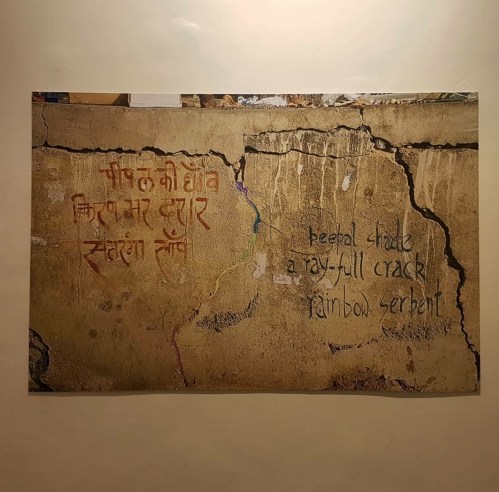 पीपल की छाँव
किरण भर दरार
सतरंगा साँप
peepal shade
a ray-full crack
rainbow serpent